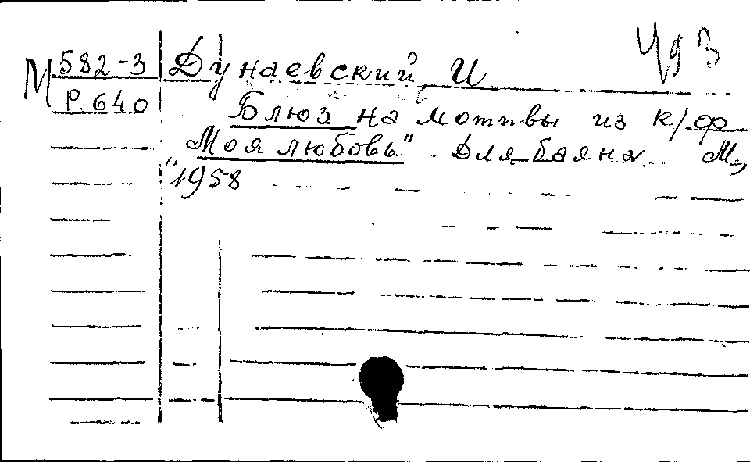 М 582-3 Дунаевский, И
Р.640 Блюз на мотивы из к/ф
"Моя любовь". Для баяна. М.,
1958